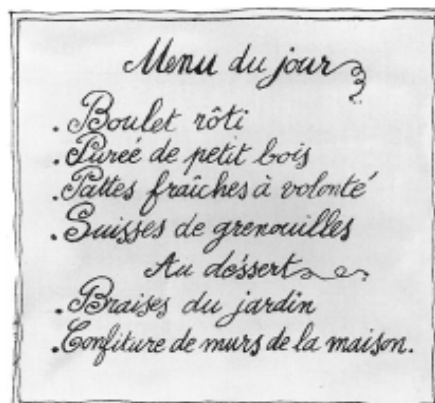 Menu du jour
. Boulet rôti
. Purée de petit bois
. Pattes fraîches à volonté
. Suisses de grenouilles
Au dessert
. Braises du jardin
. Confiture de murs de la maison.